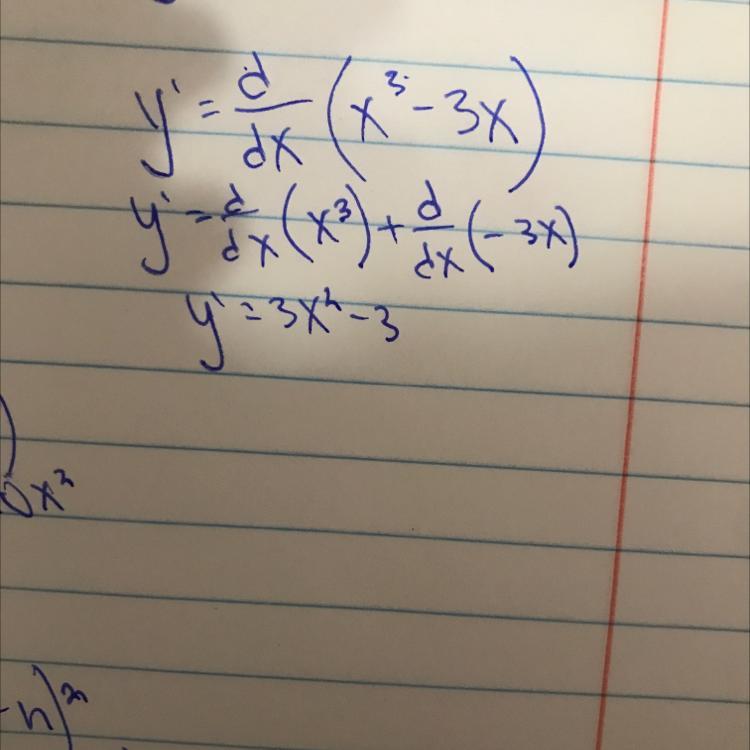 y' = d/dx (x³ - 3x)
y' = d/dx (x³) + d/dx (-3x)
y' = 3x² - 3
0x²
-n)²